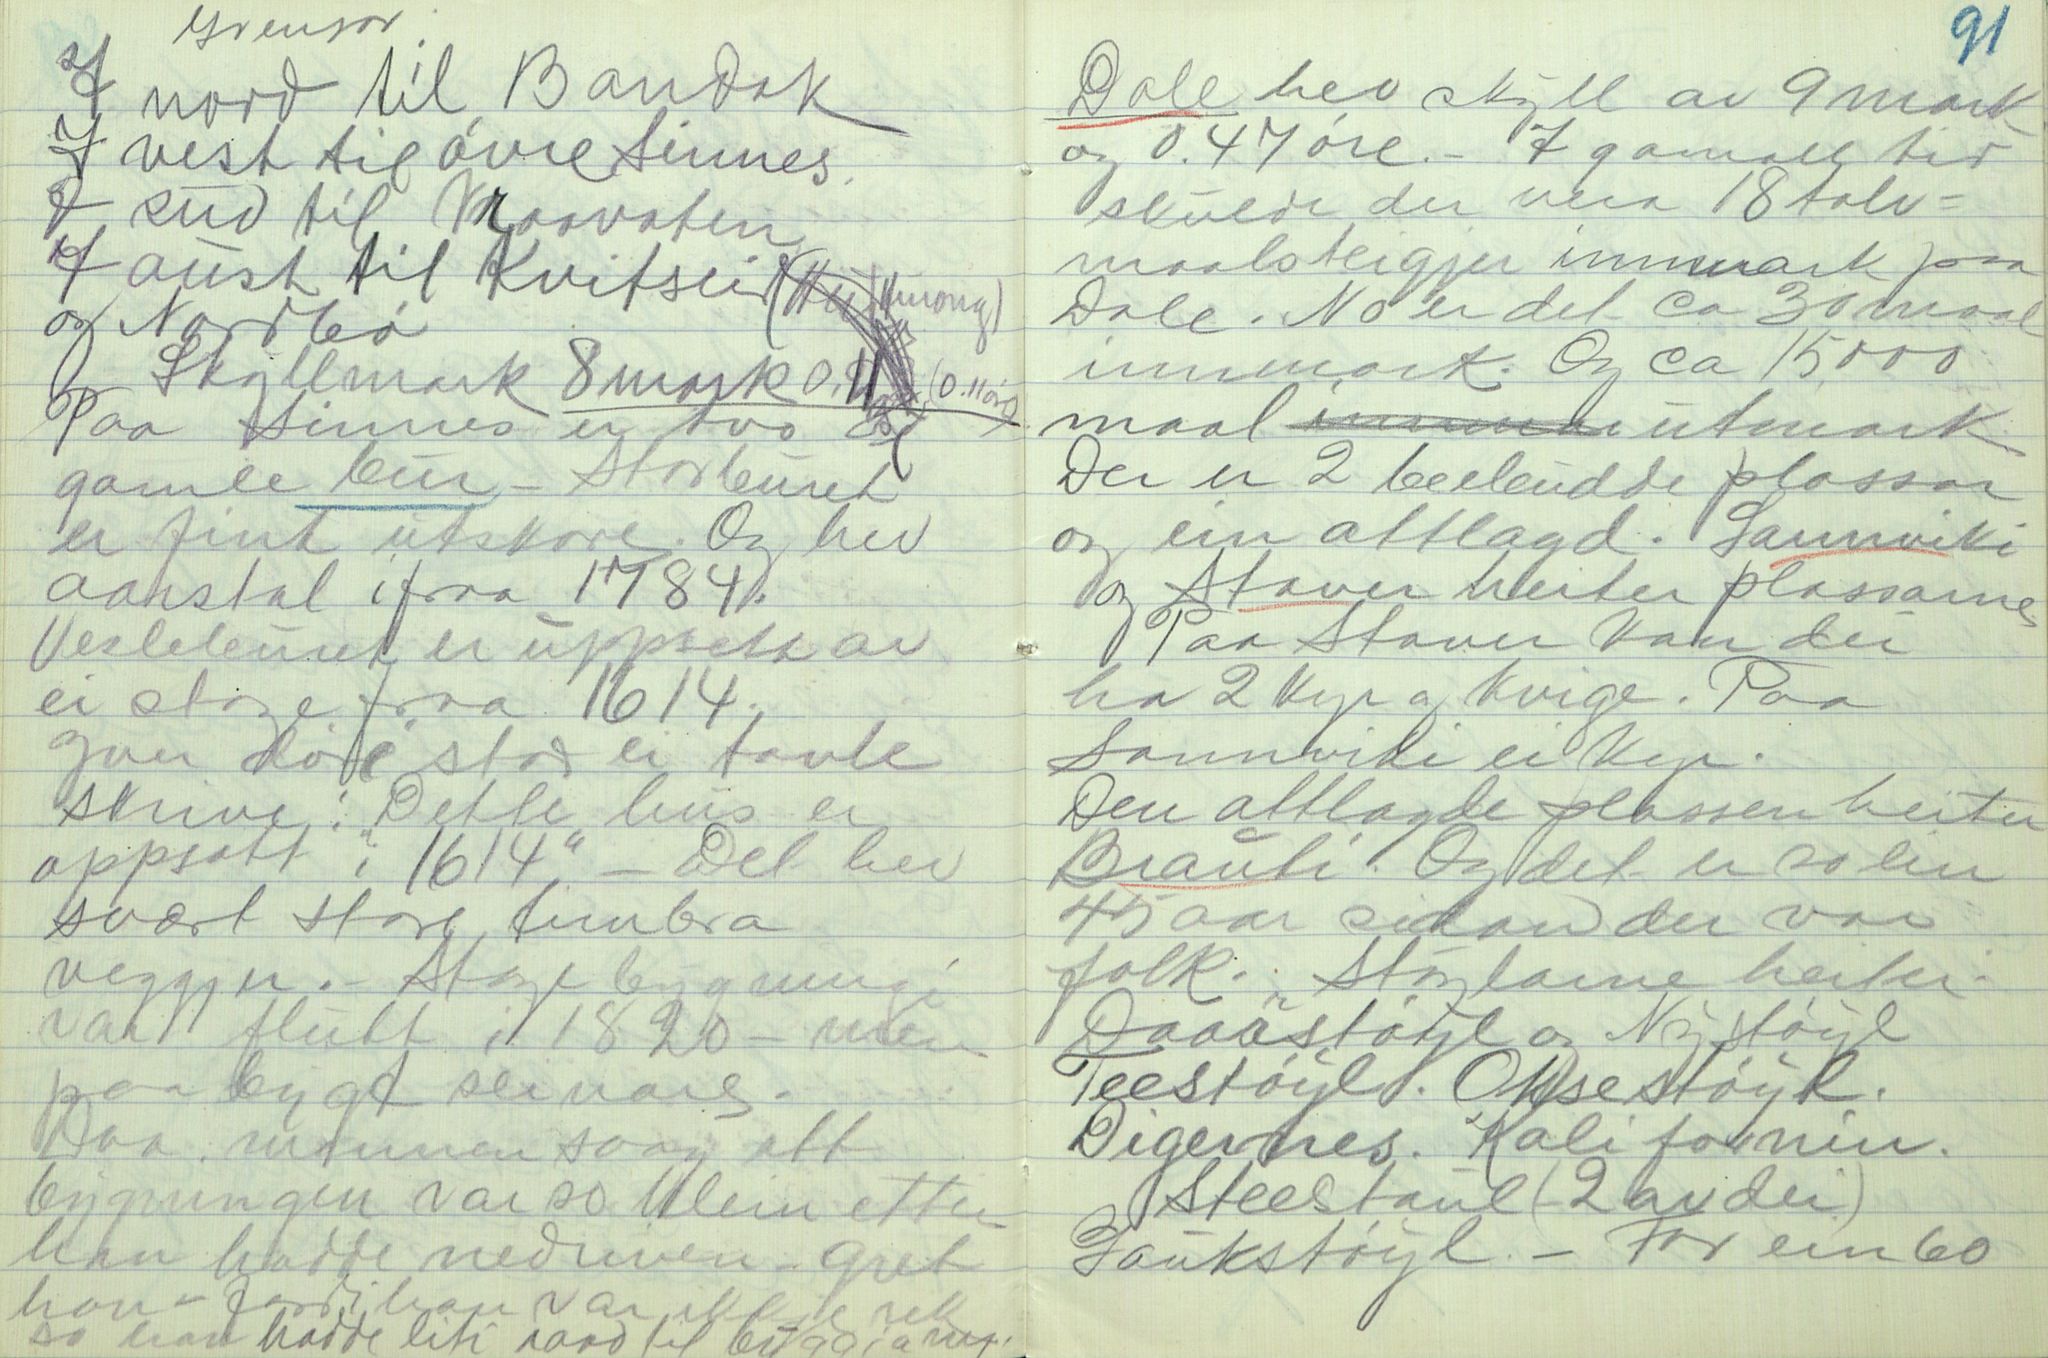 Grensor:
I nord til Bandak
I vest til övre Sinnes.
I sud til Vraavaten
I aust til Kvitseid
og Nordbö
Skyllmark 8 mark 0,11 (0.11 öre)
Paa Sinnes er tvo
gamle bur – Storburet
er fint utskore. Og hev
aarstal ifraa 1784.
Vesleburet er uppsett av
ei stoge fraa 1614.
Yver döri stod ei tavle
skrive: "Dette hus er
oppsatt i 1614" – Det hev
svært store timbra
veggjer. – Stogebygningi
vart flutt i 1820 – men
paa bygd seinare.
Daa mannen saag att
bygningen var so klein etter
han hadde nedriven – gret
han – fordi han var ikkje rik
so han hadde liti raad til byggja nye.
91
Dale hev skyll av 9 mark
og 0.47 öre. – I gamall tid
skulde der vera 18 tolv=
maalsteigjer innmark paa
Dale. No er det ca 30 maal
innmark. Og ca 15,000
maal utmark
Der er 2 beebudde plassar
og ein attlagd. Sannviki
og Staver heiter plassarne
Paa Staver kan dei
ha 2 kyr og kvige. Paa
Sannviki ei kyr.
Den attlagde plassen heiter
Brauti. Og det er so ein
45 aar sidan der var
folk. Stöylarne heiter.
Daaästöyl og Nystöyl
Teestöyl. Oksestöyl.
Digernes. Kalifornin.
Steestaul (2 av dei)
Gaukstöyl. – For ein 60